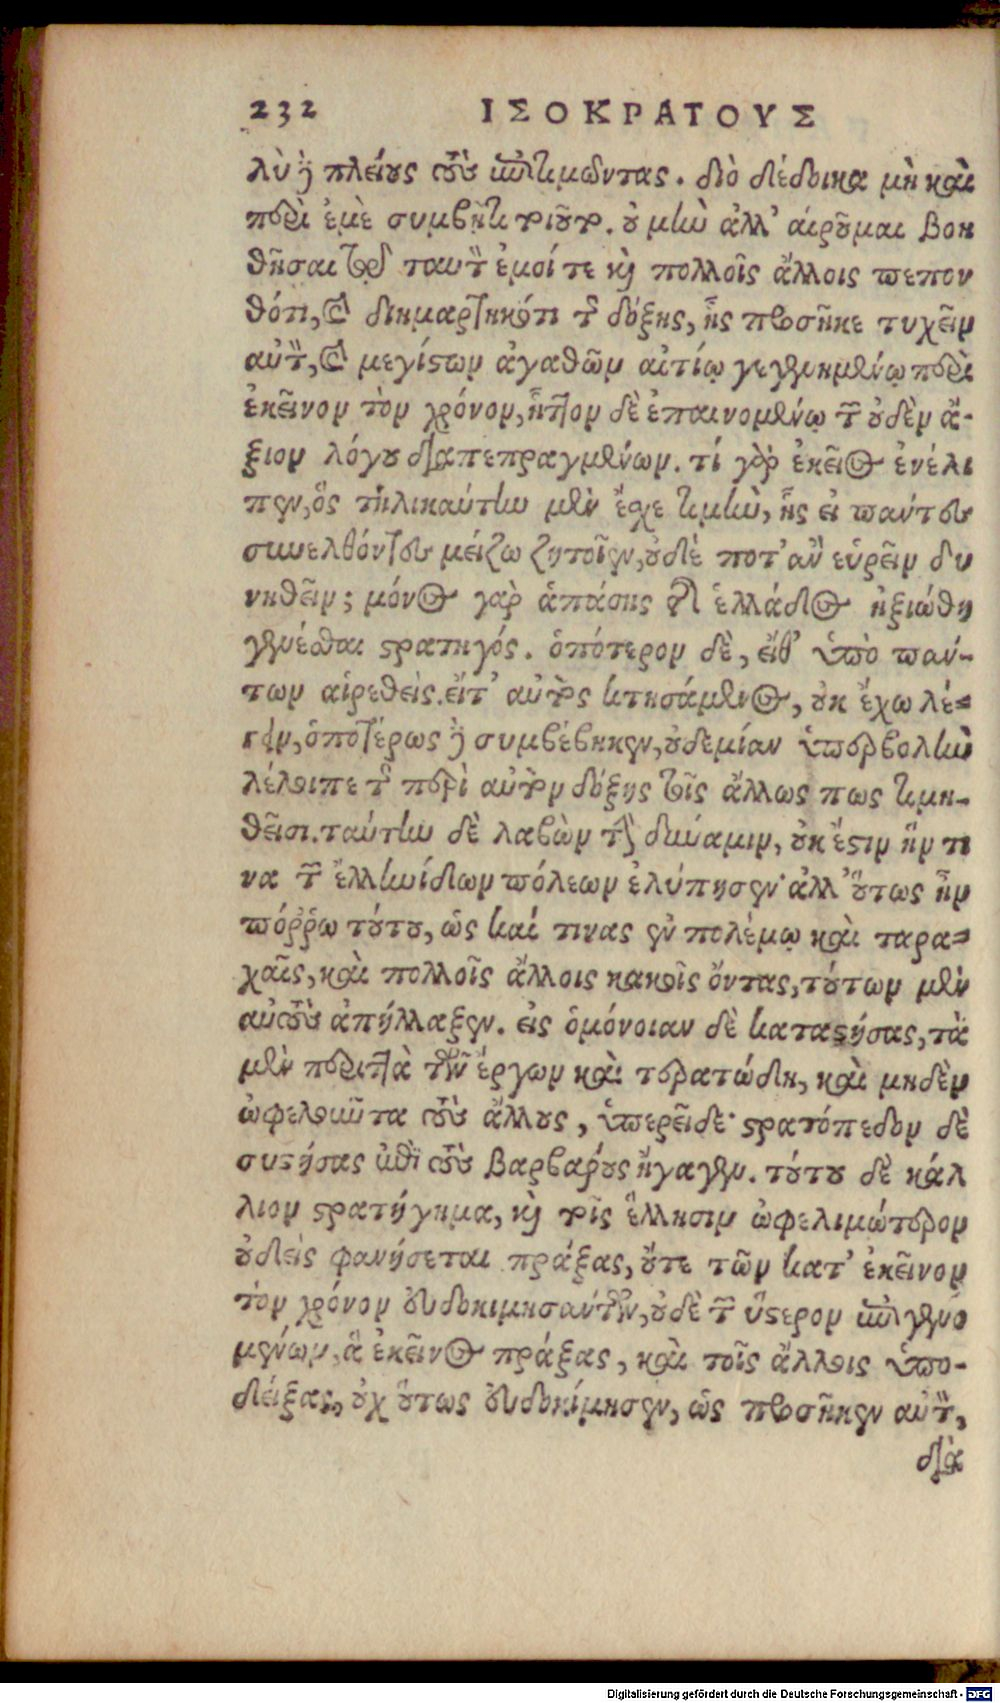 232 ΙΣΟΚΡΑΤΟΥΣ
λὺ ἢ πλείους τοὺς ἐπιτιμῶντας. διὸ δέδοικα μὴ καὶ
περὶ ἐμὲ συμβῇ τι τοιοῦτον. οὐ μὴν ἀλλ' αἱροῦμαι βοη
θῆσαι τῷ ταυτὰ ἐμοί τε καὶ πολλοῖς ἄλλοις πεπον
θότι, καὶ διημαρτηκότι τῆς δόξης, ἧς προσῆκε τυχεῖν
αὐτὸν, καὶ μεγίστων ἀγαθῶν αἰτίῳ γεγενημένῳ περὶ
ἐκεῖνον τὸν χρόνον, ἧττον δὲ ἐπαινομένῳ τῶν οὐδὲν ἄ-
ξιον λόγου διαπεπραγμένων. τί γὰρ ἐκεῖνος ἐνέλι
πεν, ὃς τηλικαύτην μὲν ἔσχε τιμὴν, ἧς εἰ πάντες
συνελθόντες μείζω ζητοῖεν, οὐδέ ποτ' ἂν εὑρεῖν δυ
νηθεῖεν; μόνος γὰρ ἁπάσης τῆς ἑλλάδος ἠξιώθη
γενέσθαι στρατηγός. ὁπότερον δὲ, εἴθ' ὑπὸ πάν-
των αἱρεθείς. εἴτ' αὐτὸς κτησάμενος, οὐκ ἔχω λέ-
γειν, ὁποτέρως δ' οὖν συμβέβηκεν, οὐδεμίαν ὑπερβολὴν
λέλοιπε τῆς περὶ αὐτὸν δόξης τοῖς ἄλλως πως τιμη-
θεῖσι. ταύτην δὲ λαβὼν τὴν δύναμιν, οὐκ ἔστιν ἥν τι
να τῶν ἑλληνίδων πόλεων ἐλύπησεν· ἀλλ' οὕτως ἦν
πόῤῥω τούτου, ὥς καί τινας ἐν πολέμῳ καὶ ταρα-
χαῖς, καὶ πολλοῖς ἄλλοις κακοῖς ὄντας, τούτων μὲν
αὐτοὺς ἀπήλλαξεν. εἰς ὁμόνοιαν δὲ καταστήσας, τὰ
μὲν περιττὰ τῶν ἔργων καὶ τερατώδη, καὶ μηδὲν
ὠφελοῦντα τοὺς ἄλλους, ὑπερεῖδε· στρατόπεδον δὲ
συστήσας ἐπὶ τοὺς βαρβάρους ἤγαγεν. τούτου δὲ κάλ
λιον στρατήγημα, καὶ τοῖς ἕλλησιν ὠφελιμώτερον
οὐδεὶς φανήσεται πράξας, οὔτε τῶν κατ' ἐκεῖνον
τὸν χρόνον εὐδοκιμησάντων, οὐδὲ τῶν ὕστερον ἐπιγενο
μένων, ἃ ἐκεῖνος πράξας, καὶ τοῖς ἄλλοις ὑπο-
δείξας, οὐχ οὕτως εὐδοκίμησεν, ὡς προσῆκεν αὐτὸν,
διὰ
Digitalisierung gefördert durch die Deutsche Forschungsgemeinschaft - DFG